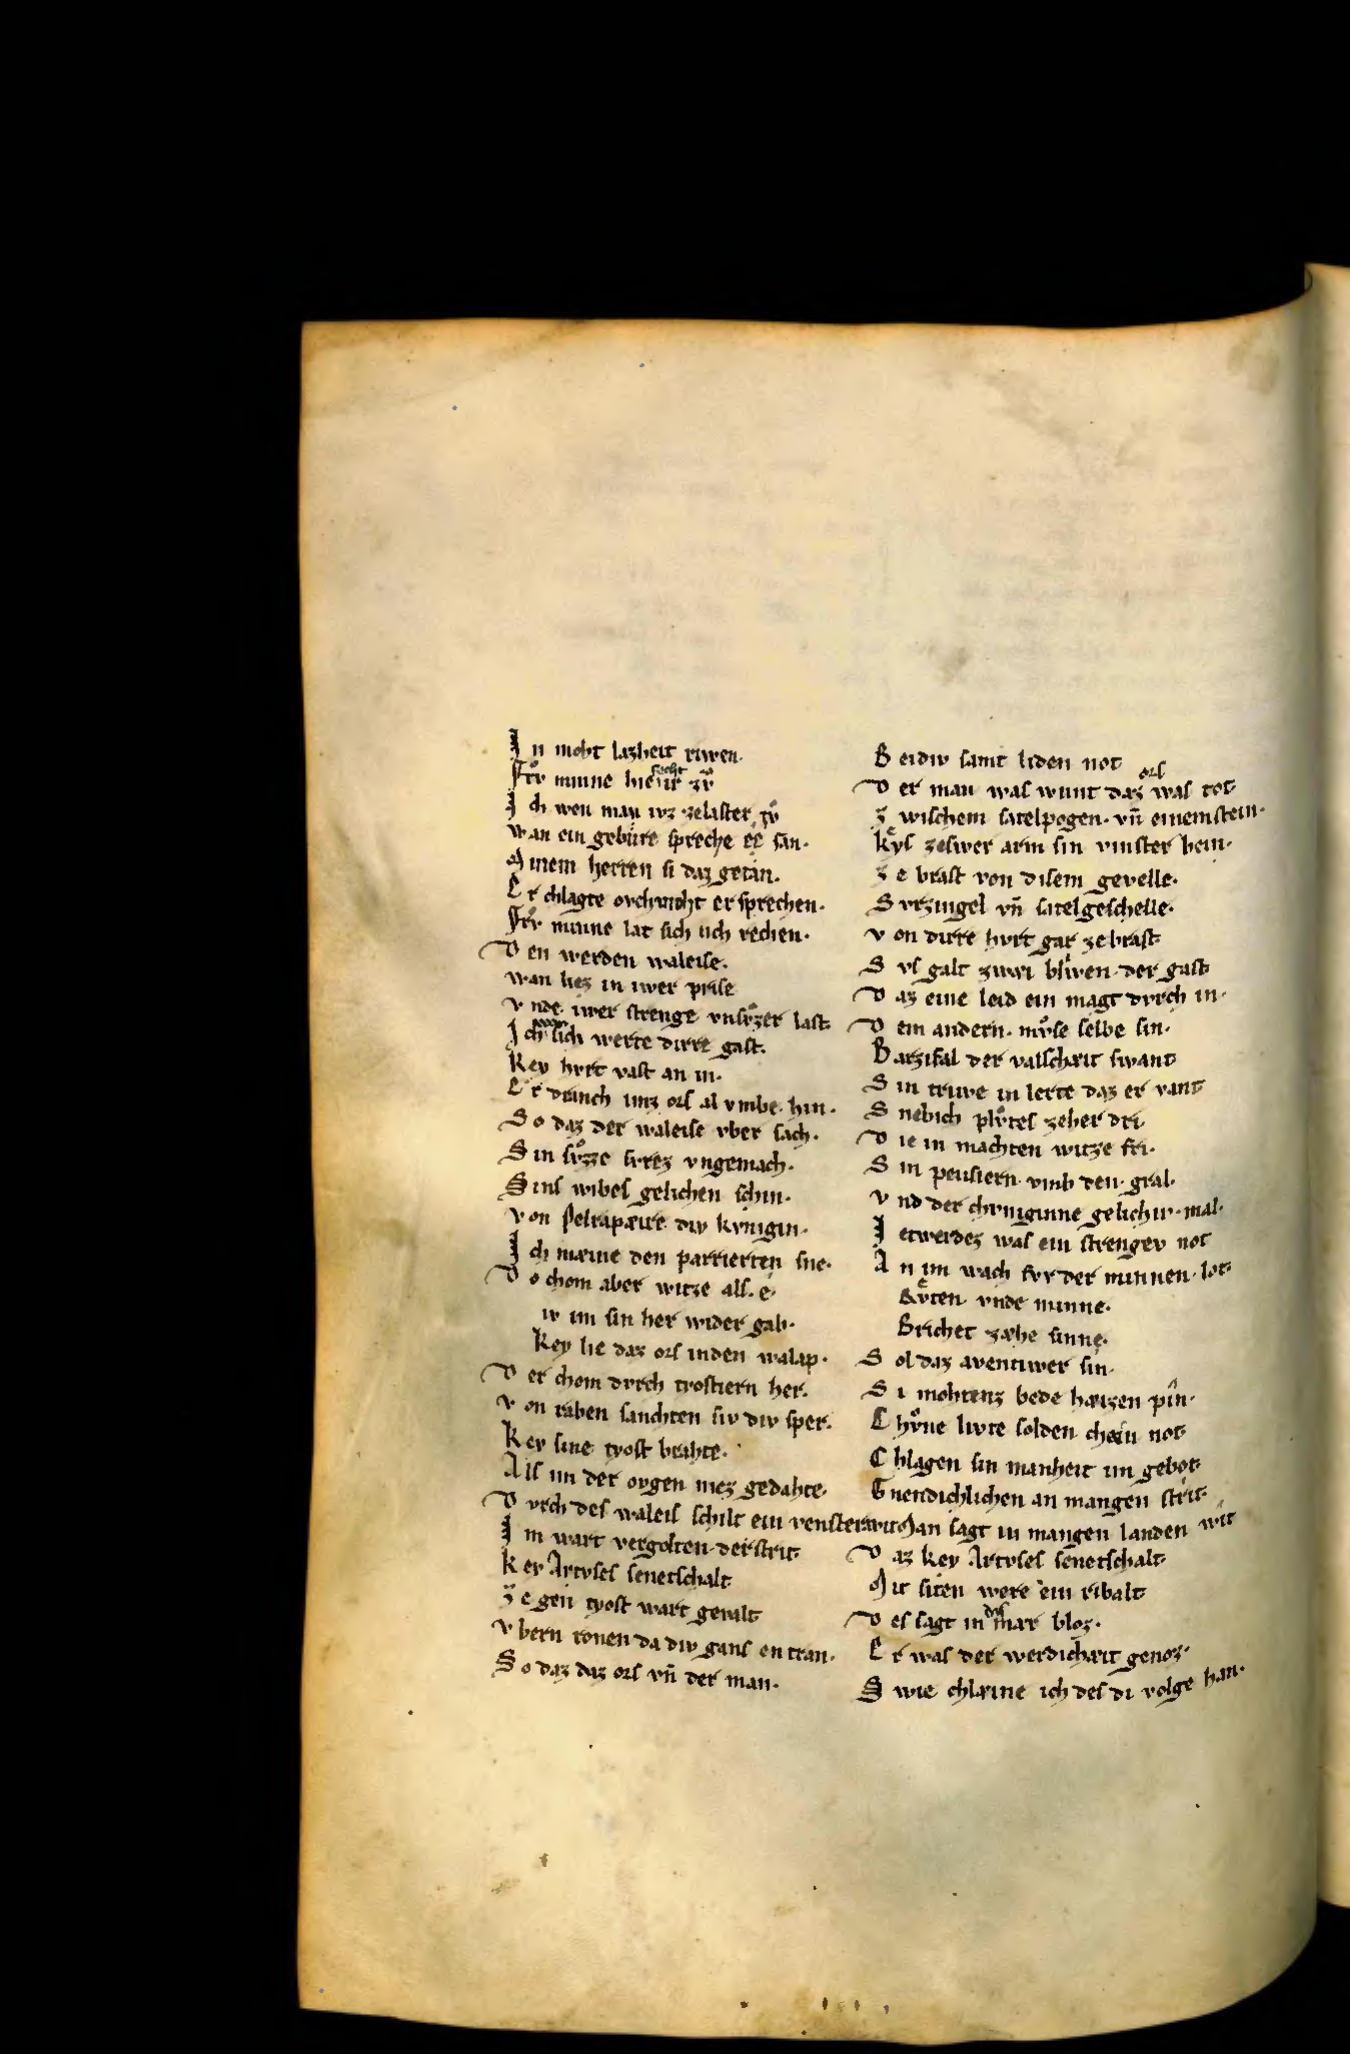 In moht lazheit riwen.
Frͮ minne hie secht ir zͮv
Ich wen man ivz zelaster tͮv
wan ein gebure spreche er san.
Minem herren si daz getan.
Er chlagte ovch moht er sprechen.
Frͮ minne lat sich iuch rechen.
Den werden waleise.
wan liez in iwer prise
vnde iwer strenge vnsvͦzer last
Ich sich werte dirre gast.
Key hvrt vast an in.
Er dranch imz ors al vmbe hin.
So daz der waleise vber sach.
Sin svͦzze svrez vngemach.
Sins wibes gelichen schin.
von Pelrapæire div kvnigin.
Ich mæine den parrierten sne.
Do chom aber witze als. e.
iv im sin her wider gab.
Key lie daz ors inden walap.
Der chom dvrch trostiern her.
von raben sanchten siv div sper.
Key sine tyost brahte.
Als im der ovgen mez gedahte.
Dvrch des waleis schilt ein venster wit
Im wart vergolten der strit
Key Artvses senetschalt
ze gen tyost wart gevalt
vbern ronen da div gans entran.
So daz daz ors vn̄ der man.
Beidiv samt liden not
Der man was wunt daz ors was tot
zwischem satelpogen. vn̄ einem stein.
kͤys zeswer arm sin vinster bein.
ze brast von disem gevelle.
Svrzingel vn̄ satelgeschelle.
von dirre hvrt gar zebrast
Svs galt zwei bliwen der gast
Daz eine leid ein magt dvrch in.
Dem andern. mvͦse selbe sin.
Barzifal der valschæit swant
Sin triwe in lerte daz er vant
Snebich plvͦtes zeher dri.
Die in machten witze fri.
Sin pensiern vmb den gral.
vnd der chvniginne gelichiv. mal.
Ietwerdez was ein strengev not
An im wach fvr der minnen lot
trvͤren vnde minne.
Brichet zæhe sinne.
Sol daz aventiwer sin.
Si mohtenz bede hæizen pin.
Chvͦne livte solden chein not
Chlagen sin manheit im gebot
Gnendichlichen an mangen strit
Man sagt in mangen landen wit
Daz key Artvses senetschalt
Mit siten were ein ribalt
Des sagt in des mar bloz.
Er was der werdichæit genoz.
Swie chlæine ich des di volge han.